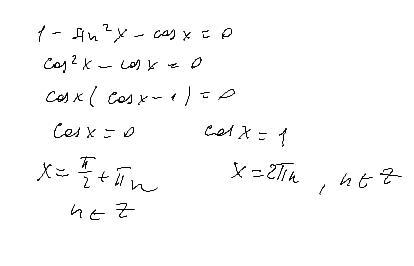 1 - sin²x - cos x = 0
cos²x - cos x = 0
cos x ( cos x - 1 ) = 0
cos x = 0 cos x = 1
x = π/2 + πn x = 2πn , n ∈ Z
n ∈ Z